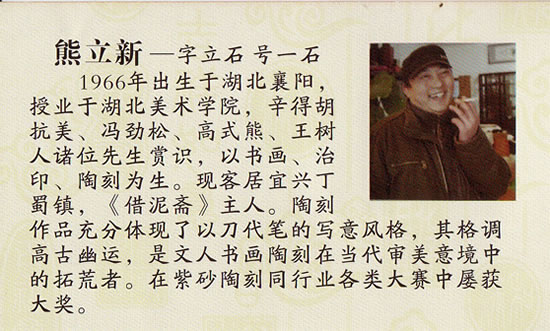 熊立新—字立石 号一石
1966年出生于湖北襄阳，
授业于湖北美术学院，辛得胡
抗美、冯劲松、高式熊、王树
人诸位先生赏识，以书画、治
印、陶刻为生。现客居宜兴丁
蜀镇，《借泥斋》主人。陶刻
作品充分体现了以刀代笔的写意风格，其格调
高古幽运，是文人书画陶刻在当代审美意境中
的拓荒者。在紫砂陶刻同行业各类大赛中屡获
大奖。